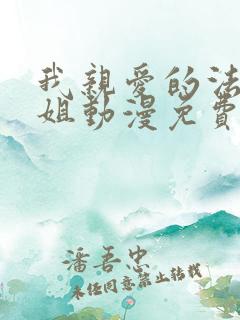 我親愛的法
姐動漫免費
潘吾忠
未經同意禁止轉載